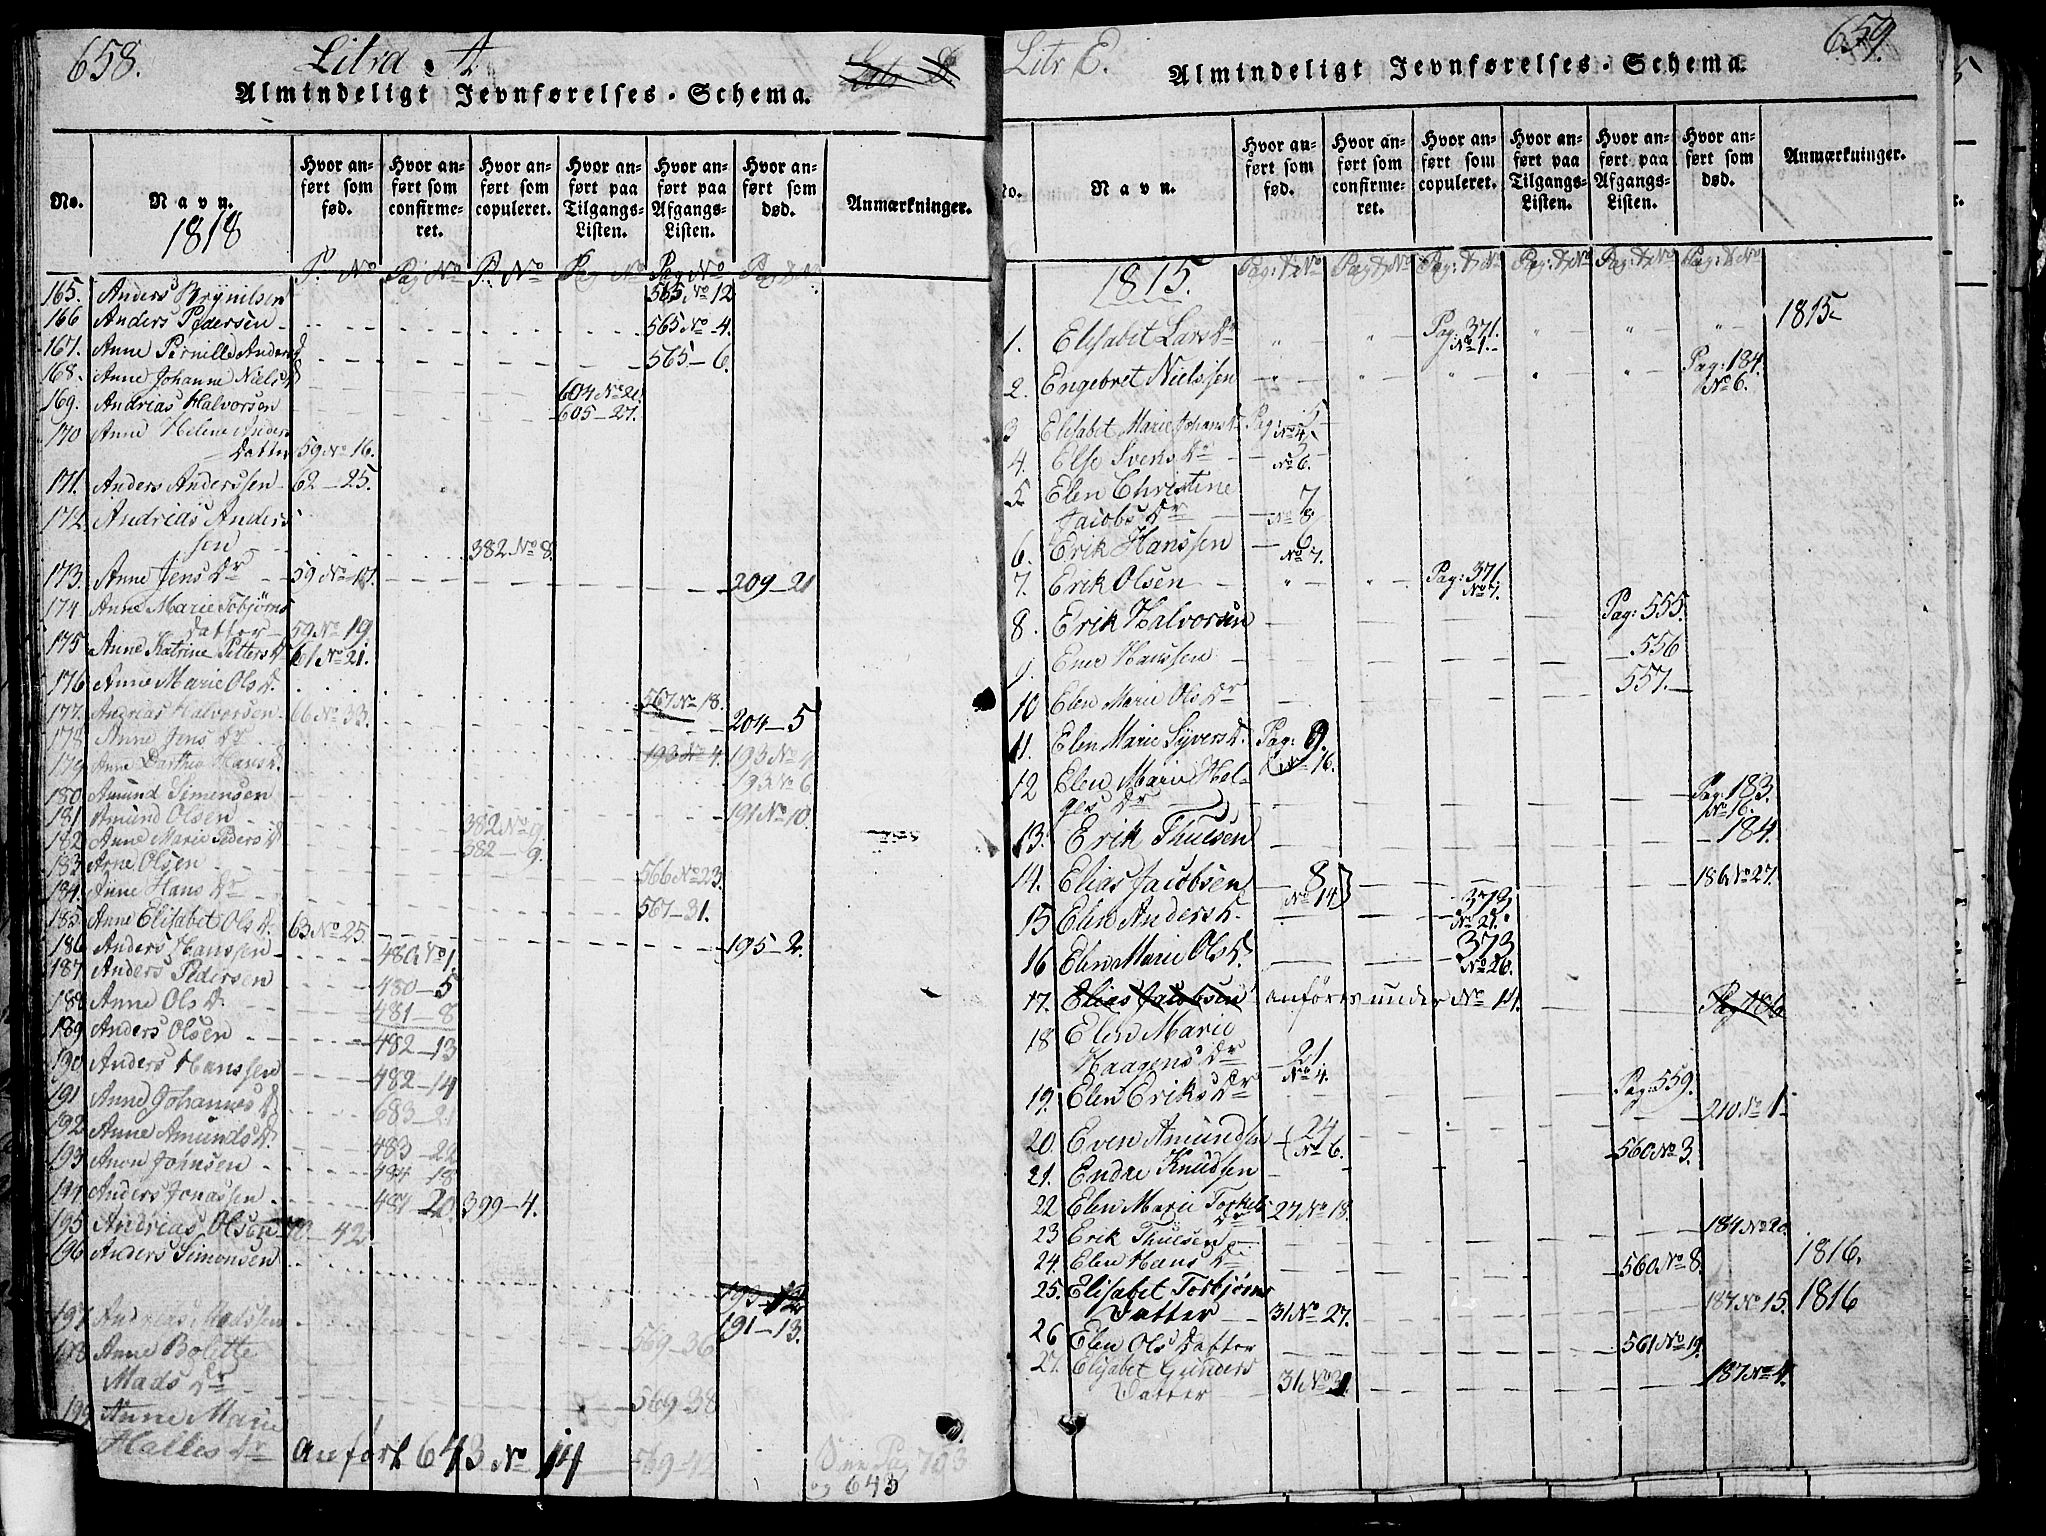 658.
Litra A
Almindeligt Jevnførelses-Schema.
No.
Navn.
1818
Hvor anført som fød.
Hvor anført som confirmeret.
Hvor anført som copuleret.
Hvor anført paa Tilgangs-Listen.
Hvor anført paa Afgangs-Listen.
Hvor anført som død.
Anmærkninger.
P. No Pag No P. No Pag No Pag No Pag & No
165. Anders Brynilsen 565 No 12
166 Anders Pedersen 565 No 4.
167. Anne Pernille Anders D 565-6.
168. Anne Johanne Niels D 604 No 20
169. Andrias Halvorsen 605-27.
170 Anne Helene Anders
Datter 59 No 16.
171. Anders Anderssen 62-25.
172. Andrias Anders
sen 382 No 8.
173. Anne Jens Dr 59 No 17. 209-21
174 Anne Marie Tobjørns
Datter 59 No 19
175 Anne Katrine Petters D 61 No 21.
176 Anne Marie Ols D. 567 No 18.
177. Andrias Halvorsen 66 No 33. 204-5
178 Anne Jens Dr 193 No 4. 193 No 4
179 Anne Dorthea Hans D. 193 No 6.
180 Amund Simensen 191 No 10.
181 Amund Olsen 382 No 9.
182 Anne Marie Peders D 382-9.
183 Arne Olsen 566 No 23.
184 Anne Hans Dr 567-31.
185 Anne Elisabet Ols D. 63 No 25. 195-2.
186 Anders Hanssen 480 No 1.
187 Anders Pedersen 480-5
188 Anne Ols D. 481-8
189 Anders Olsen 482-13
190 Anders Hanssen 482-14
191 Anne Johannes D 683-21
192 Anne Amunds D. 483-22
193 Anon Johnsen 484 18
194 Anders Jonassen 484 20. 399-4.
195 Andrias Olsen 42
196 Anders Simonsen 193-12
197 Andreas Madssen 191-13. 569-36
198 Anne Bolette
Mads Dr 569-38
199 Anne Marie
Halles Dr anført 643 No 14 569-42
643
Litr E.
659.
Almindeligt Jevnførelses-Schema.
No.
Navn.
Hvor anført som fød.
Hvor anført som confirmeret.
Hvor anført som copuleret.
Hvor anført paa Tilgangs-Listen.
Hvor anført paa Afgangs-Listen.
Hvor anført som død.
Anmærkninger.
1815. Pag: & No Pag & No Pag: & No Pag: & No Pag: & No Pag: & No
1. Elisabet Lars Dr Pag: 371. No 1. 1815
2. Engebret Nielssen Pag: 184. No 6.
3 Elisabet Marie Johans Dr Pag: 5 No 4.
4. Else Svens Dr No 6.
5 Elen Christine
Jacobs Dr 7 No 8
6. Erik Hanssen 6 No 7.
7. Erik Olsen Pag: 371 No 7.
8. Erik Halvorsen Pag: 555.
9. Ener Hanssen 556
10 Elen Marie Ols Dr 557.
11. Elen Marie Syvers D. Pag: 9. No 16.
12 Elen Marie Hel-
ges Dr Pag: 183. No 16.
13. Erik Thuesen 184.
14. Elias Jacobsen 8 No 14 186 No 27.
15 Elen Anders D. 373 No 21.
16 Elen Marie Ols D. 373 No 26.
17. Elias Jacobsen anføres under No 14.
18 Elen Marie
Haagens Dr 21. No 4.
19. Elen Eriks Dr Pag: 559.
210 No 1
20. Even Amundsen 24 No 6. 560 No 3.
21. Endre Knudsen
22 Elen Marie Torkels
Dr 27 No 18.
23 Erik Thuesen 184 No 20.
24. Elen Hans D. 560 No 8. 1816.
25. Elisabet Torbjørns 187 No 15. 1816
Datter 31 No 27.
26 Elen Ols Datter 561 No 19.
27. Elisabet Gunders
Datter 31 No 31. 187 No 4.